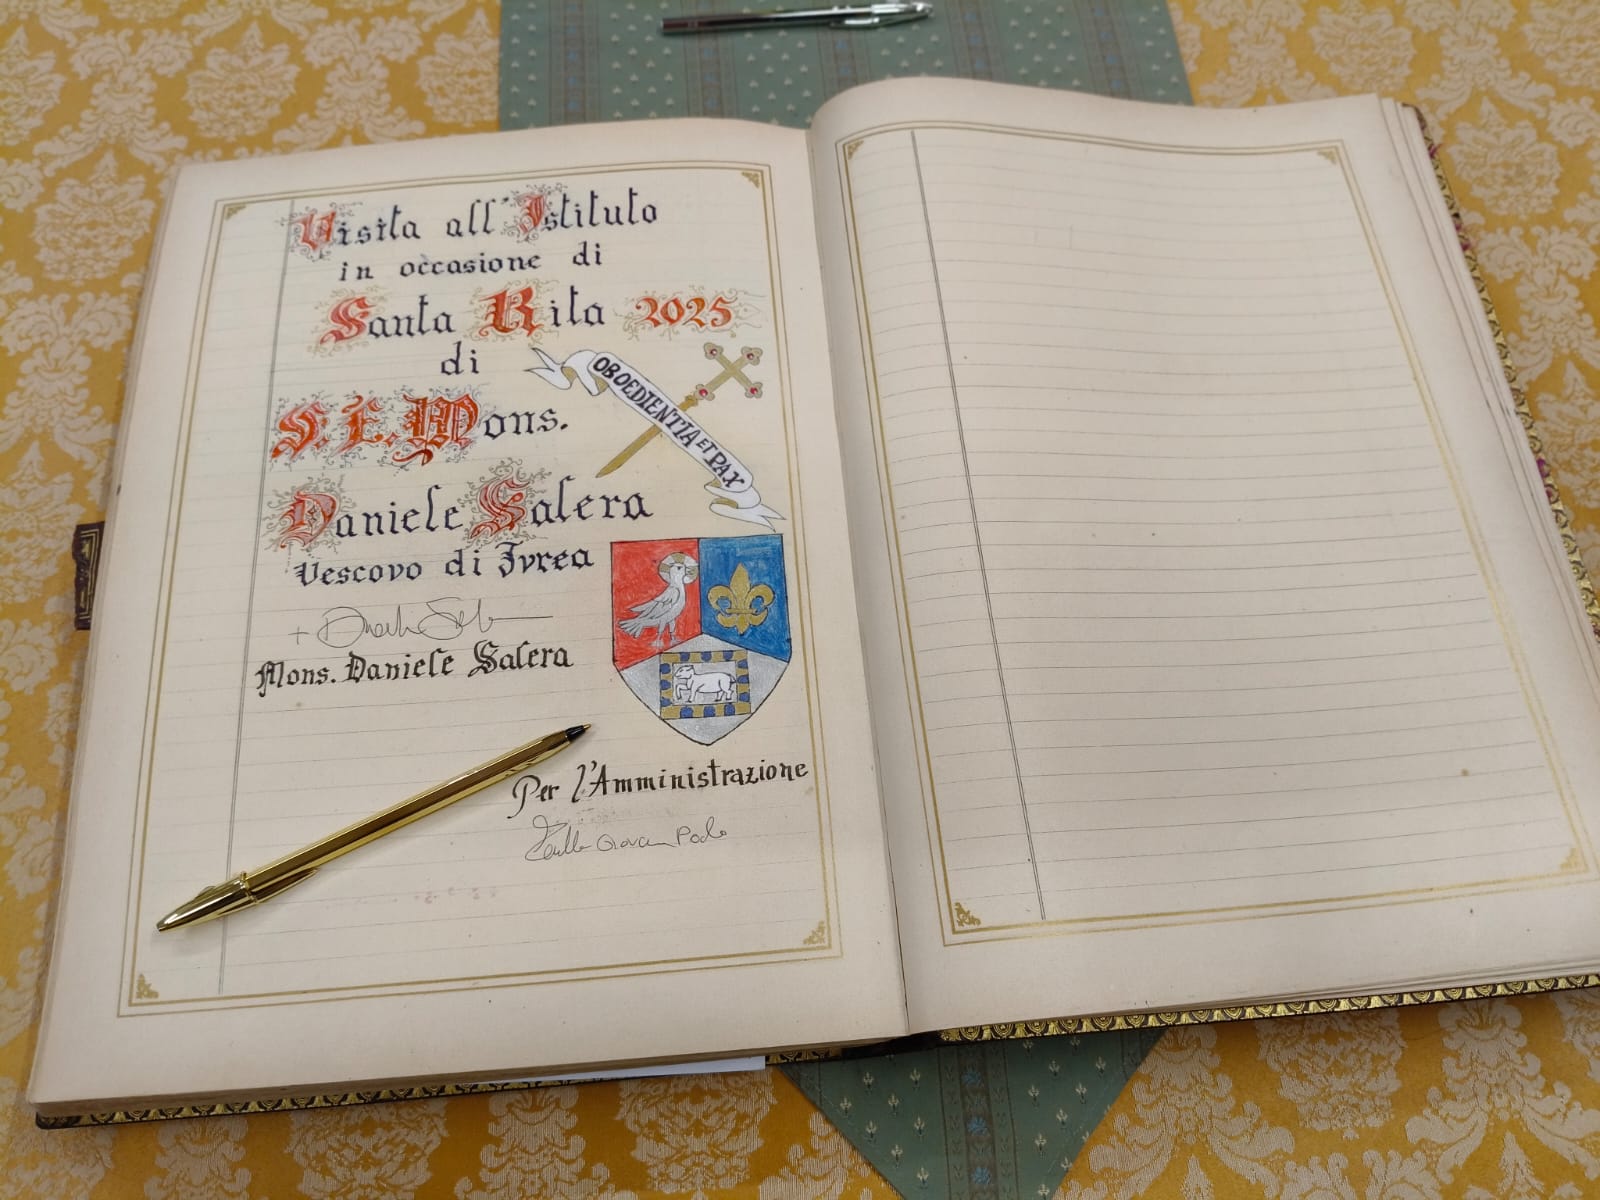 Visita all'Istituto
in occasione di
Santa Rita 2025
di
S.E. Mons.
OBOEDIENTIA ET PAX
Daniele Salera
Vescovo di Ivrea
Mons. Daniele Salera
Per l'Amministrazione